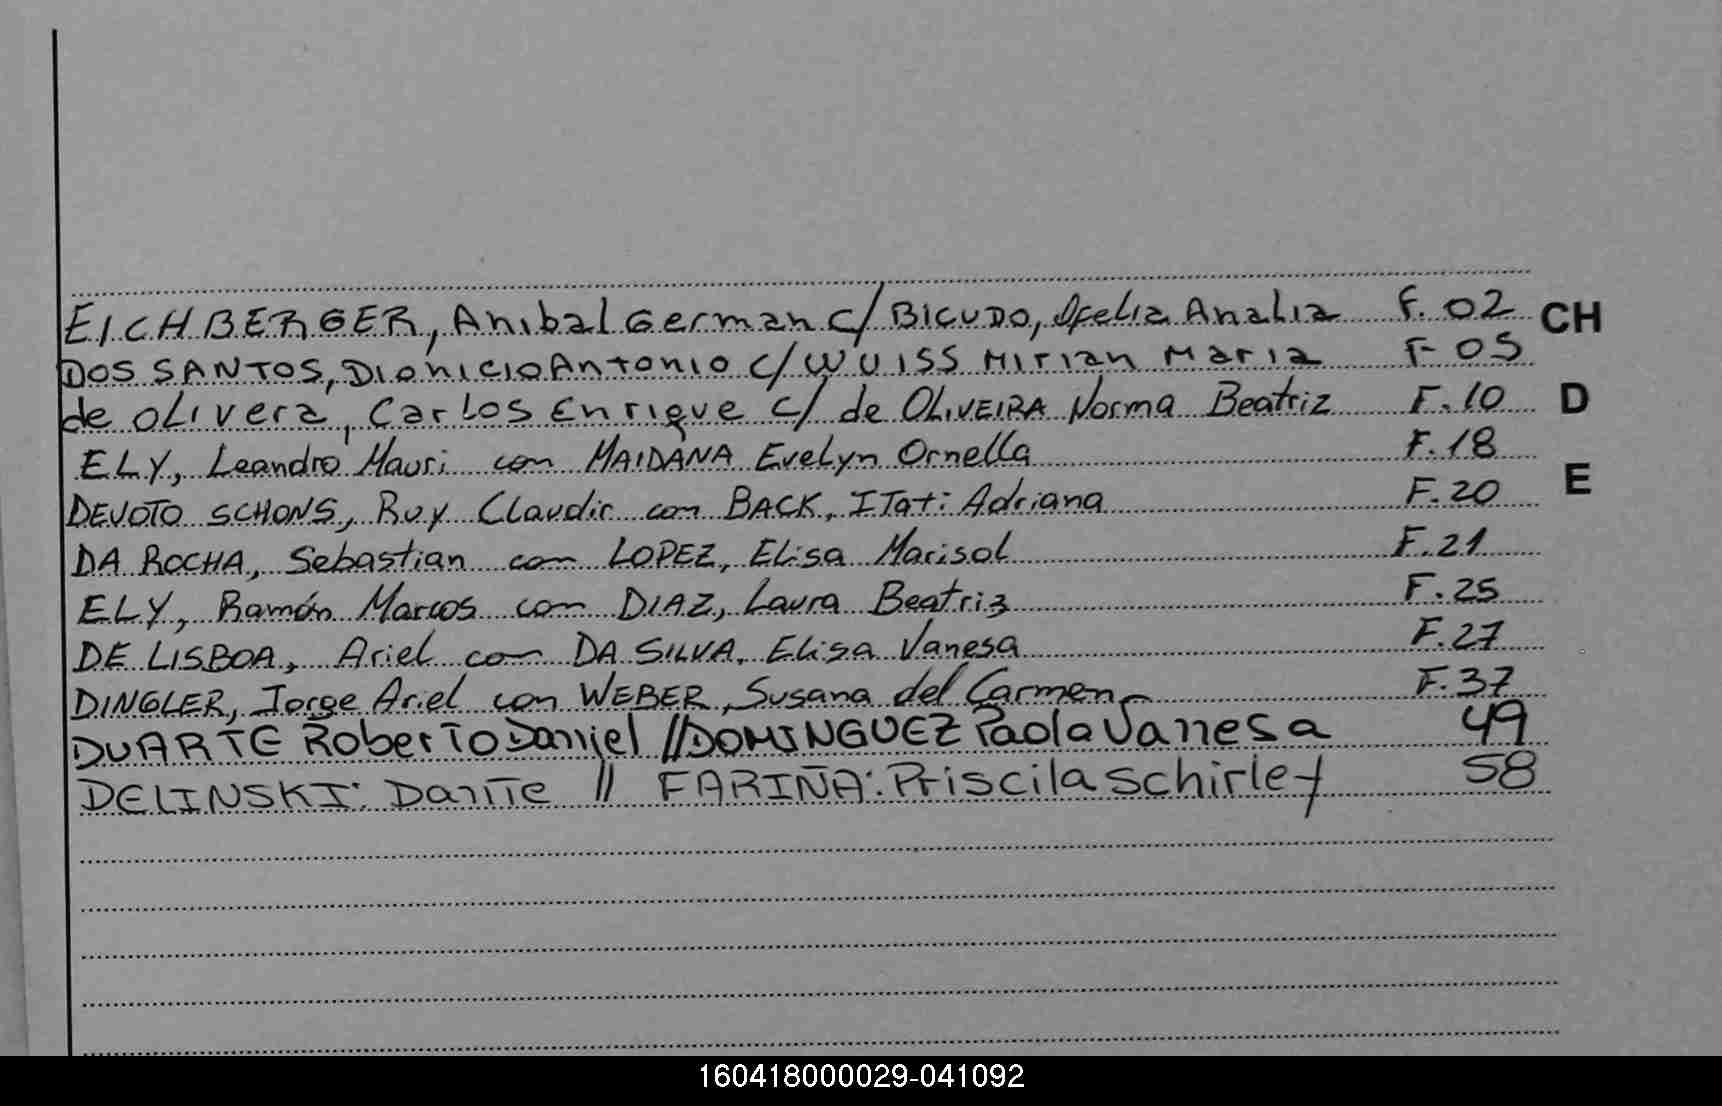 EICHBERGER, Anibal German c/ BICUDO, Ofelia Analia F. 02 CH
DOS SANTOS, Dionicio Antonio c/ WUISS Mirian Maria F- 05
de olivera, Carlos Enrique c/ de OLIVEIRA Norma Beatriz F. 10 D
ELY, Leandro Mauri con MAIDANA Evelyn Ornella F. 18
DEVOTO SCHONS, Ruy Claudir con BACK, ITati Adriana F. 20 E
DA ROCHA, Sebastian con LOPEZ, Elisa Marisol F. 21
ELY, Ramón Marcos con DIAZ, Laura Beatriz F. 25
DE LISBOA, Ariel con DA SILVA, Elisa Vanesa F. 27
DINGLER, Jorge Ariel con WEBER, Susana del Carmen F. 37
DUARTE Roberto Daniel // DOMINGUEZ Paola Vanesa 49
DELINSKI: Dante // FARIÑA: Priscila Schirley 58
160418000029-041092